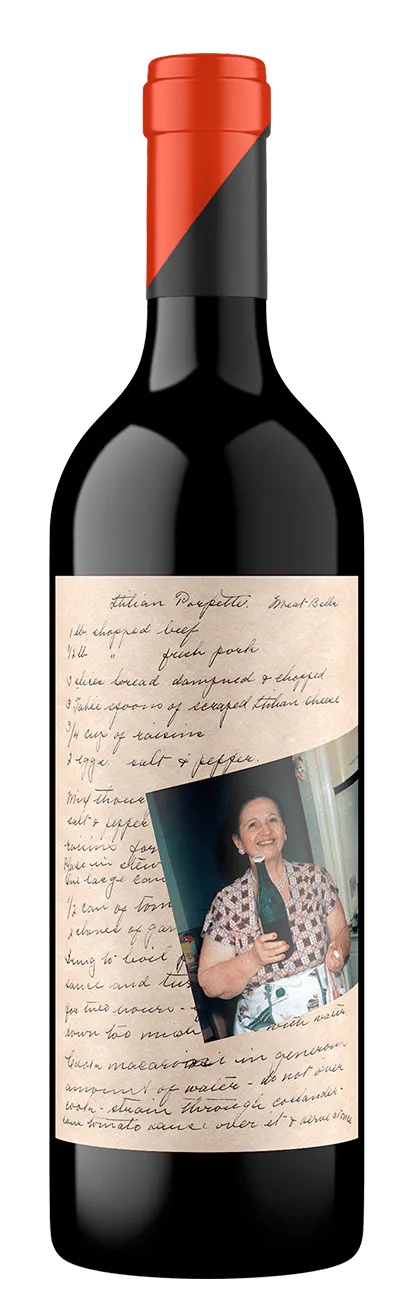 Itilian Porpette. Meat Balls
1 lb. chopped beef
1/2 lb " fresh pork
3 slices bread dampned & chopped
3 Table spoons of scraped Itilian cheese
3/4 cup of raisins
2 eggs. salt & pepper.
Mix thour
salt & pepper
raisins for
Place in stew
One large can
1/2 can of tom
2 cloves of gar
bring to boil
same and tur
for two hours -
down too much with water
Cook macaroni in generous
amount of water - do not over
cook - strain through colander -
pour tomato sauce over it & serve at once